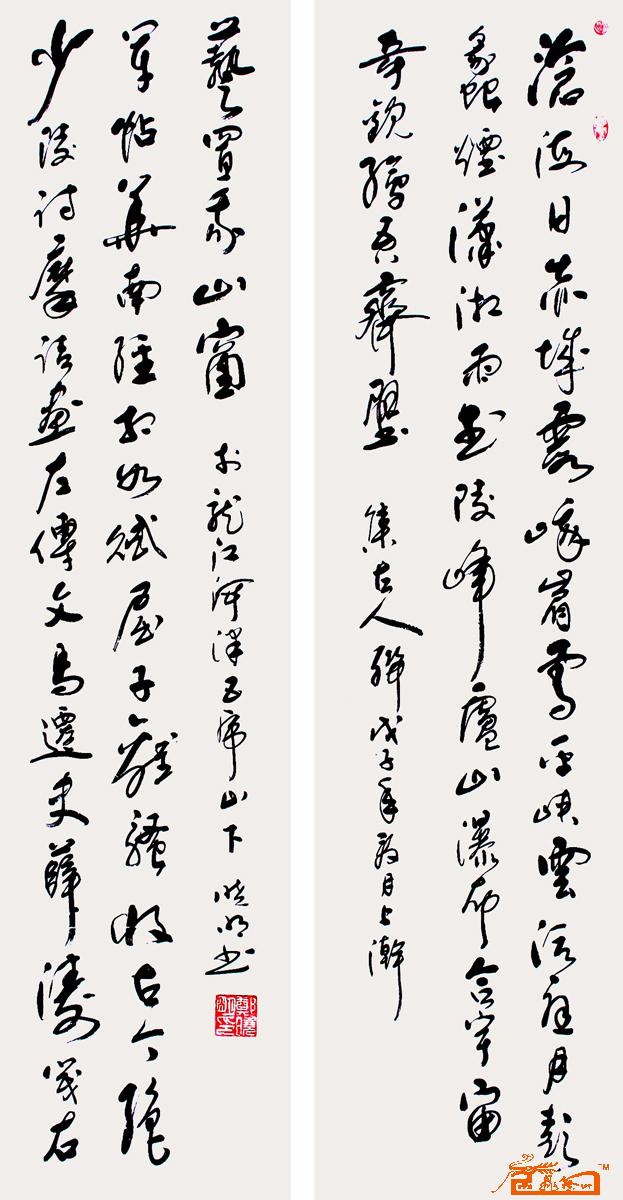 滄海日赤城霞峨眉雪巫峽雲洞庭月彭
蠡煙瀟湘雨武陵峰廬山瀑布合宇宙
奇觀繪吾齋壁 集古人聯戊子年月上澣
少陵詩摩詰畫左傳文馬遷史薛濤箋右
軍帖華南經相如賦屈子離騷收古今絕
藝置我山窗 於龍江河洋五虎山下 曉明書